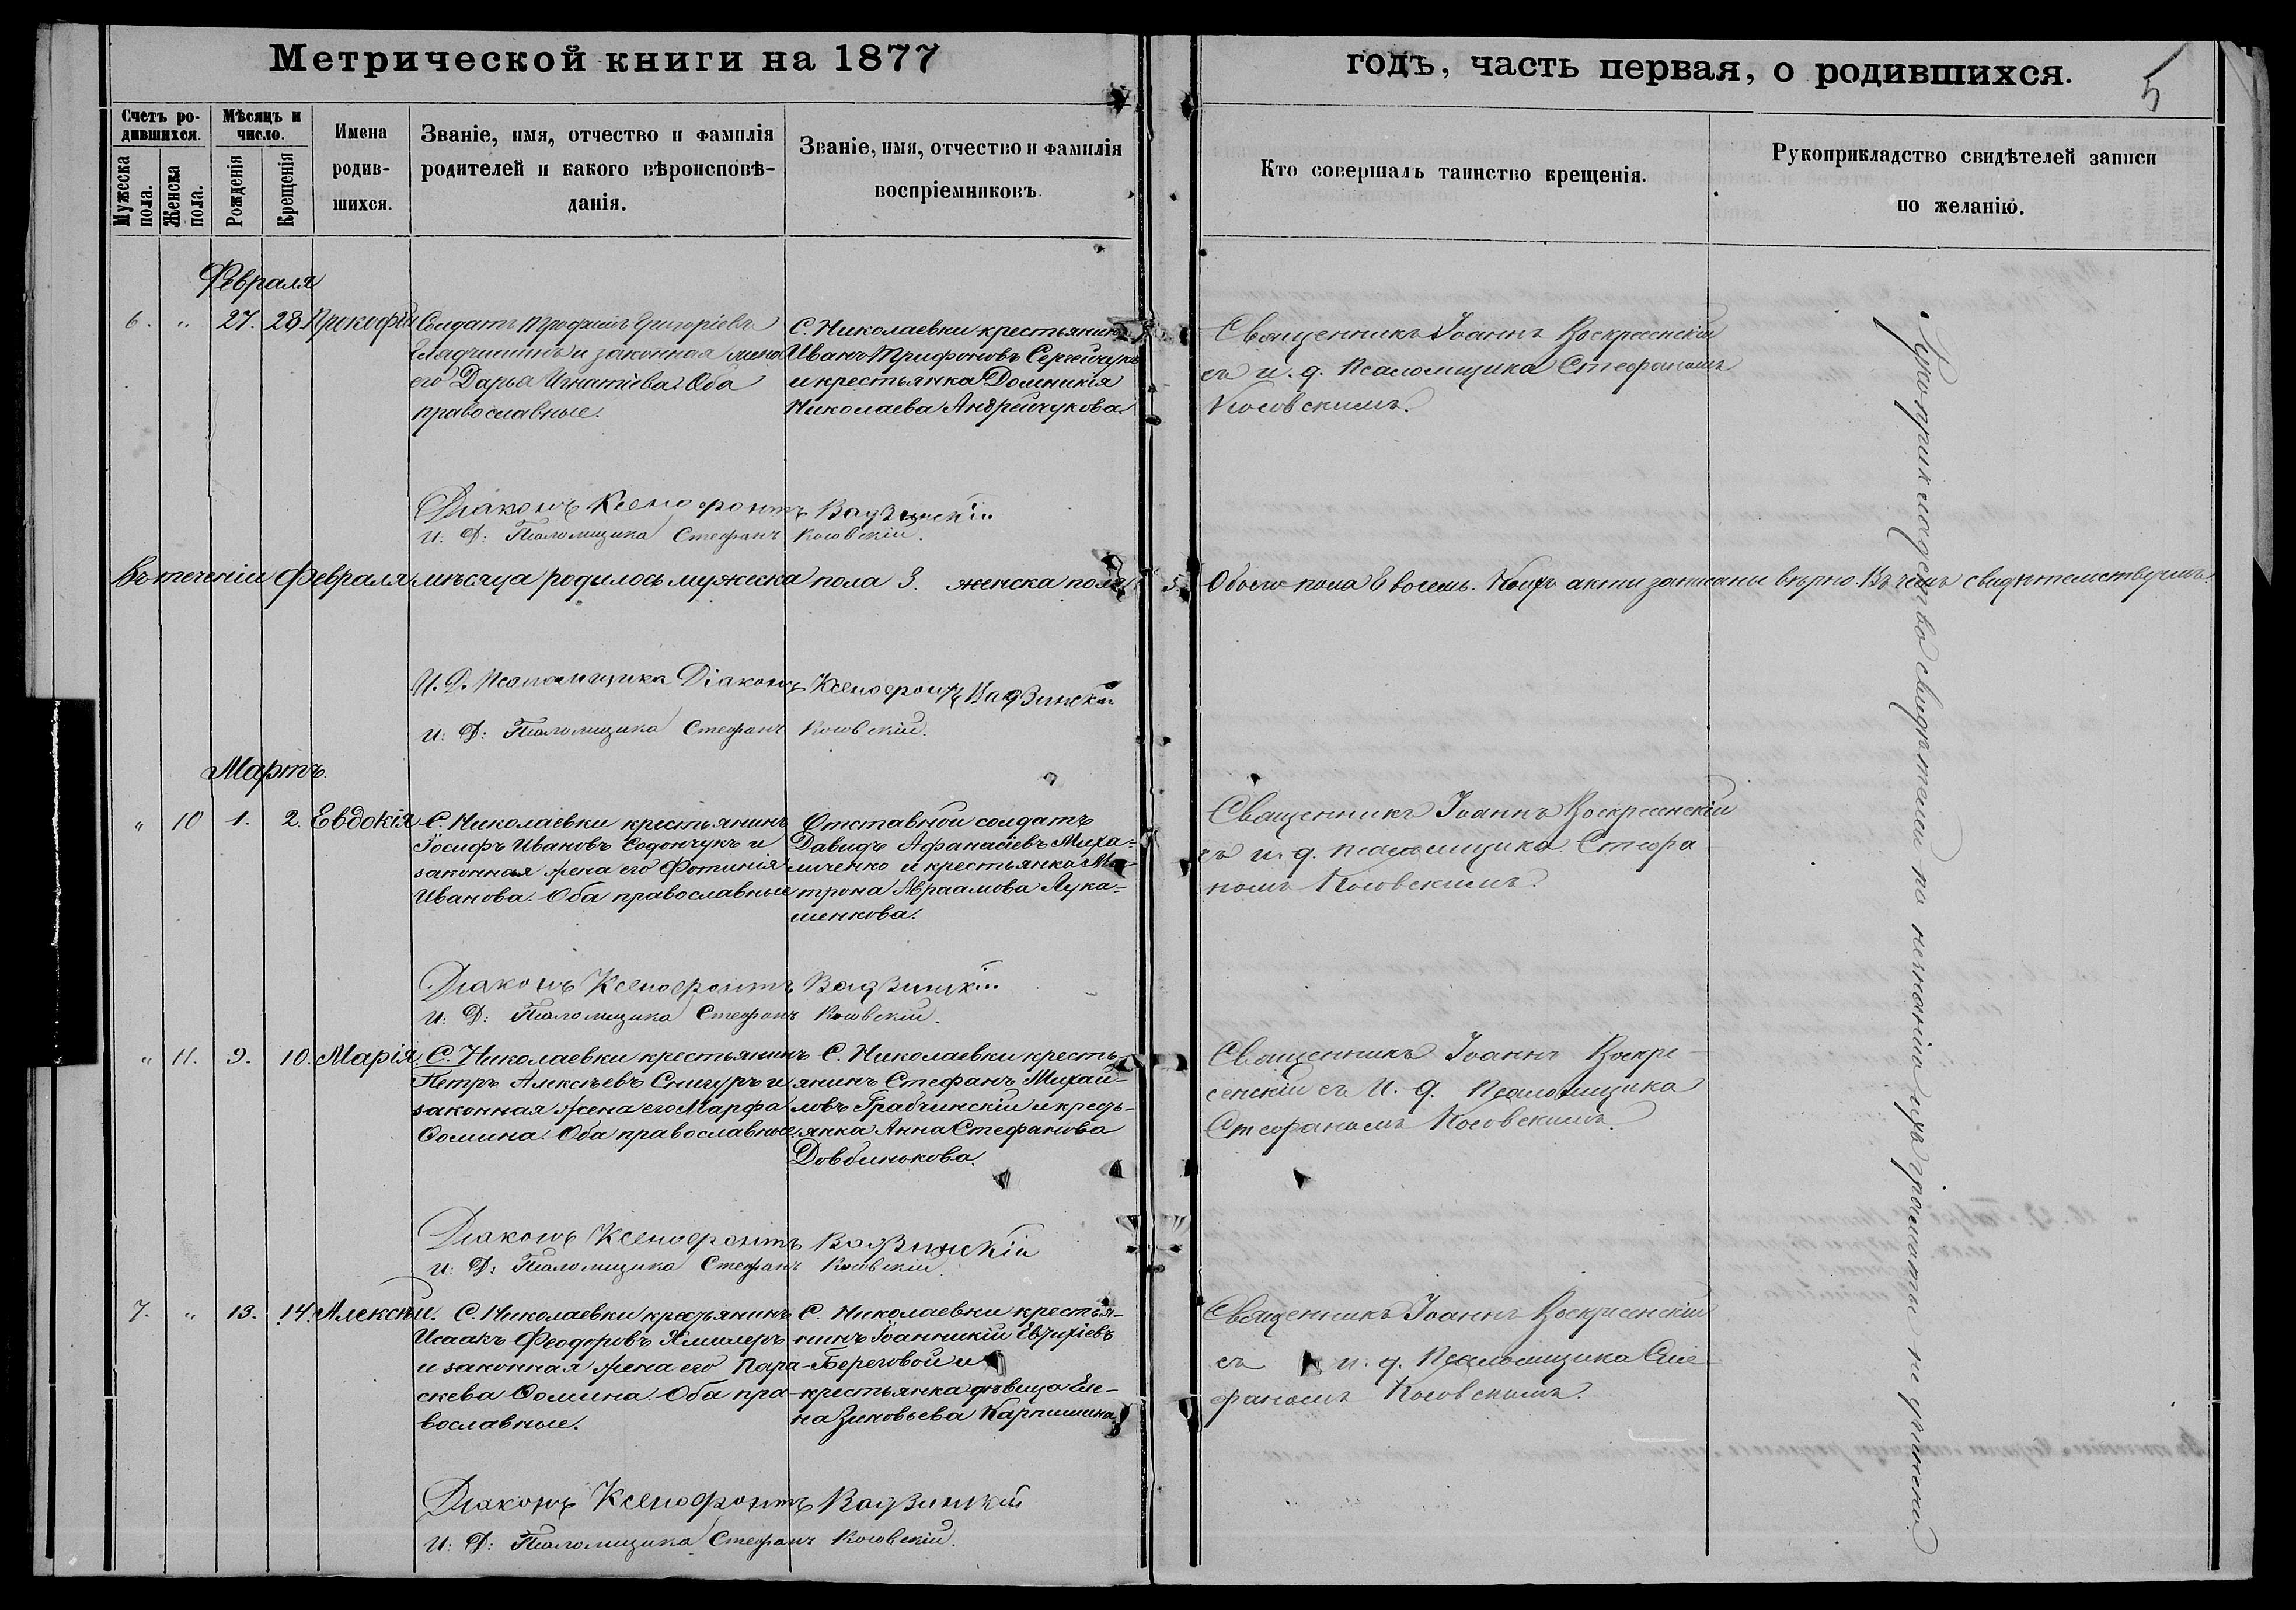 Метрической книги на 1877
годъ, часть первая, о родившихся.
5
Счетъ ро-
дившихся.
Мужеска пола.
Женска пола.
Мѣсяцъ и
число.
Рожденія
Крещенія
Имена
родив-
шихся.
Званіе, имя, отчество и фамилія
родителей и какого вѣроисповѣ-
данія.
Званіе, имя, отчество и фамилія
воспріемниковъ.
Кто совершалъ таинство крещенія.
Рукоприкладство свидѣтелей записи
по желанію.
Февраля
6. " 27. 28. Прокофій
Солдатъ Трофимъ Григоріевъ
и законная жена
его Дарья Игнатіева. Оба
православные.
С. Николаевки крестьянинъ
Иванъ Трифоновъ Сергейчукъ
и крестьянка Домникія
Николаева Андрейчукова.
Священникъ Іоаннъ Воскресенскій
съ и. д. Псаломщика Стефаномъ
Косовскимъ.
Діаконъ Ксенофонтъ Вадзинскій
И: Д: Псаломщика Стефанъ Косовскій.
Въ теченіи Февраля мѣсяца родилось мужеска пола 3. женска пола 5. Обоего пола 8 восемь. Коихъ акты записаны вѣрно. Въ чемъ свидѣтельствуемъ.
И. Д. Псаломщика Діаконъ Ксенофонтъ Вадзинскій
И: Д: Псаломщика Стефанъ Косовскій.
Мартъ.
" 10 1. 2. Евдокія
С. Николаевки крестьянинъ
Іосифъ Ивановъ Содончукъ и
законная жена его Фотинія
Иванова. Оба православные
Отставной солдатъ
Давидъ Афанасіевъ Миха-
личенко и крестьянка Ма-
трона Авраамова Лука-
шенкова.
Священникъ Іоаннъ Воскресенскій
съ и. д. псаломщика Стефа
номъ Косовскимъ.
Діаконъ Ксенофонтъ Вадзинскій
И: Д: Псаломщика Стефанъ Косовскій.
" 11. 9. 10. Марія
С. Николаевки крестьянинъ
Петръ Алексѣевъ Снигуръ и
законная жена его Марфа
Ѳомина. Оба православные.
С. Николаевки кресть
янинъ Стефанъ Михай-
ловъ Грабчинскій и кресть-
янка Анна Стефанова
Довбинокова.
Священникъ Іоаннъ Воскре-
сенскій съ И. д. Псаломщика
Стефаномъ Косовскимъ.
Діаконъ Ксенофонтъ Вадзинскій
И: Д: Псаломщика Стефанъ Косовскій.
7. " 13. 14. Алексѣй.
С. Николаевки крестьянинъ
Исаакъ Феодоровъ Хмилеръ
и законная жена его Пара-
скева Ѳомина. Оба пра-
вославные.
С. Николаевки крестья-
нинъ Іоанникій Евтихіевъ
Береговой и
крестьянка дѣвица Еле-
на Зиновьева Карпишина
Священникъ Іоаннъ Воскресенскій
съ и. д. Псаломщика Сте
фаномъ Косовскимъ.
Діаконъ Ксенофонтъ Вадзинскій
И: Д: Псаломщика Стефанъ Косовскій.
Рукоприкладство свидѣтелей по незнанію ихъ грамоты не учинено.